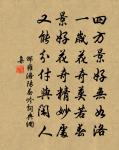 四方景好無如洛
一歲花奇莫若春
景好花奇精妙處
又能分付與閑人
邵雍洛陽春吟詞典網